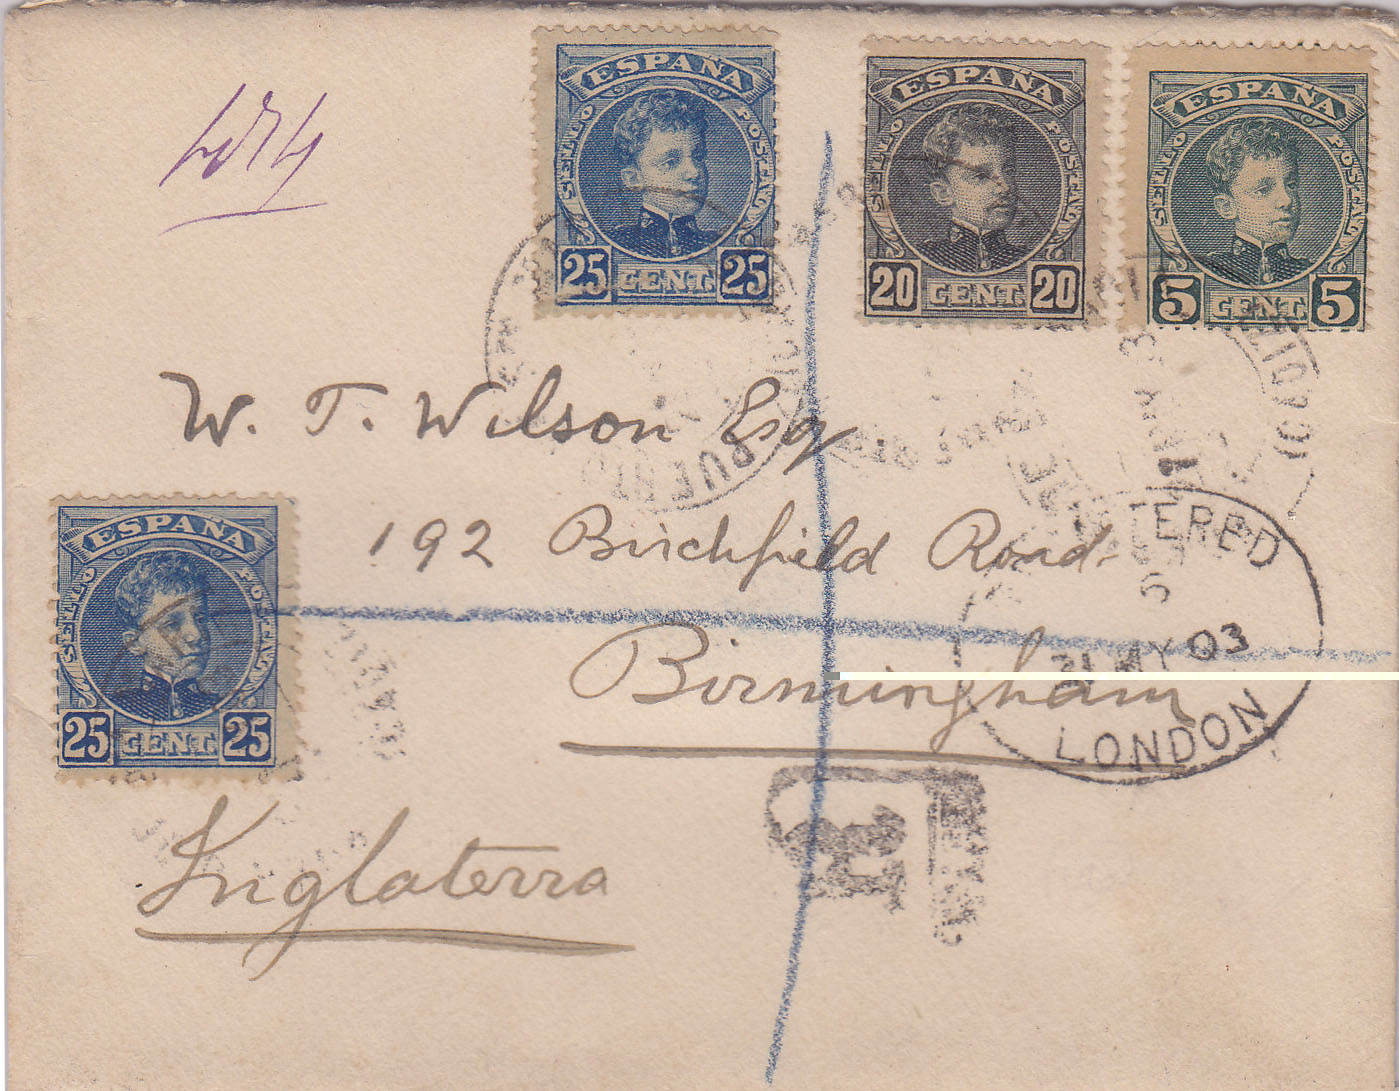 ESPAÑA
SELLO POSTAL
25 CENT. 25
ESPAÑA
SELLO POSTAL
20 CENT. 20
ESPAÑA
SELLO POSTAL
5 CENT. 5
W. T. Wilson Esq
192 Birchfield Road
Birmingham
Inglaterra
ESPAÑA
SELLO POSTAL
25 CENT. 25
PUERTO
MY 03
LONDON
R